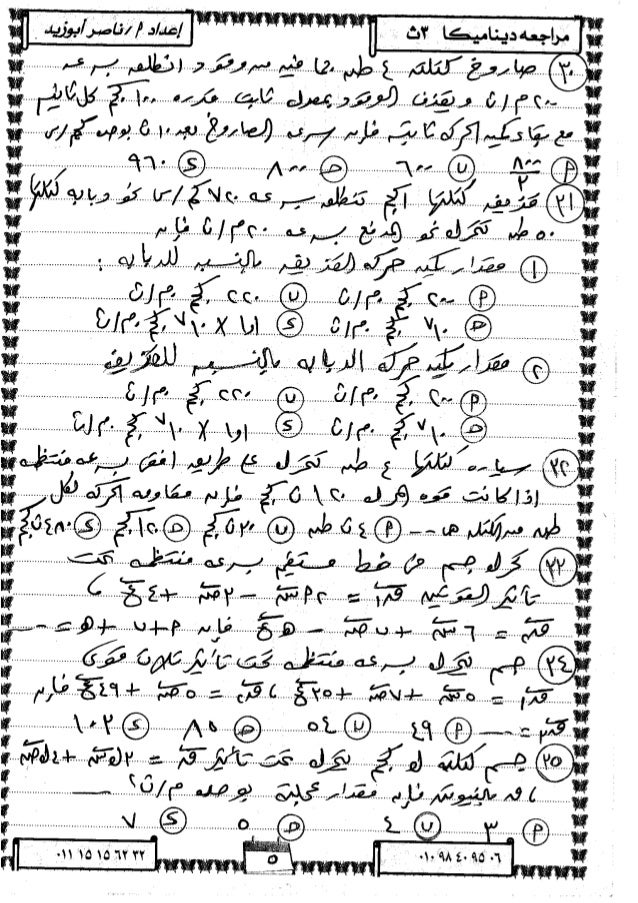 مراجعه ديناميكا ٣ث
إعداد م/ ناصر ابوزيد
٢٠ صاروخ كتلته ٤ طن بما فيه من وقود انطلق بسرعه
٢٠٠ م/ث ويقذف الوقود بمعدل ثابت مقداره ١٠٠ كجم كل ثانيه
مع بقاء كميه الحركه ثابته فإن سرعه الصاروخ بعد ١٠ ث بوحده كم/س
أ ٨٠٠/٣ ب ٦٠٠ ج ٨٠٠ د ٩٦٠
٢١ قذيفه كتلتها ١ كجم تنطلق بسرعه ٧٢٠ كم/س نحو دبابه كتلتها
٥٠ طن تتحرك نحو المدفع بسرعه ٢٠ م/ث فإن
١ مقدار كميه حركه القذيفه بالنسبه للدبابه :
أ ٢٠٠ كجم . م/ث ب ٢٢٠ كجم . م/ث
ج ٧١٠ كجم . م/ث د ١,١ × ٧١٠ كجم . م/ث
٢ مقدار كميه حركه الدبابه بالنسبه للقذيفه
أ ٢٠٠ كجم . م/ث ب ٢٢٠ كجم . م/ث
ج ٧١٠ كجم . م/ث د ١,١ × ٧١٠ كجم . م/ث
٢٢ سياره كتلتها ٤ طن تتحرك على طريق افقى بسرعه منتظمه
اذا كانت قوه المحرك ١٢٠ ث كجم فإن مقاومه الحركه لكل
طن من الكتله هى --- أ ٤ ث طن ب ٣٠ ث كجم ج ١٢٠ كجم د ٤٨٠ ث كجم
٢٣ تحرك جسم فى خط مستقيم بسرعه منتظمه تحت
تأثير القوتين ق١ = ٢أ س - ٢ ص + ٤ ع ،
ق٢ = ٦ س + ب ص - هـ ع فإن أ + ب + هـ = ---
٢٤ جسم يتحرك بسرعه منتظمه تحت تأثير ثلاث قوى
ق١ = ٥ س + ٧ ص + ٢٥ ع ، ق٢ = ٥ ص + ٤٩ ع فإن
ق٣ = --- أ ٤٩ ب ٥٤ ج ٨٥ د ١٠٢
٢٥ جسم كتلته ك كجم يتحرك تحت تأثير ق = ٣ ك س + ٤ ك ص
، ق بالنيوتن فإن مقدار عجلته بوحده م/ث٢ ---
أ ٣ ب ٤ ج ٥ د ٧
٠١٠ ٩٨ ٤٠ ٩٥ ٠٦
٥
٠١١ ١٥ ١٥ ٦٢ ٢٢